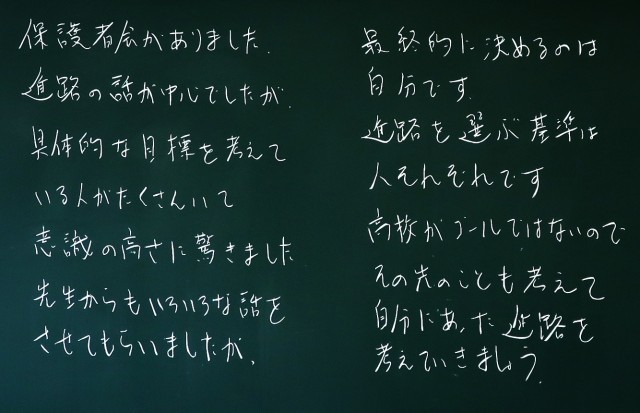 保護者会がありました.
進路の話が中心でしたが.
具体的な目標を考えて
いる人がたくさんいて
意識の高さに驚きました
先生からもいろいろな話を
させてもらいましたが、
最終的に決めるのは
自分です.
進路を選ぶ基準は
人それぞれです
高校がゴールではないので
その先のことも考えて
自分にあった進路を
考えていきましょう.